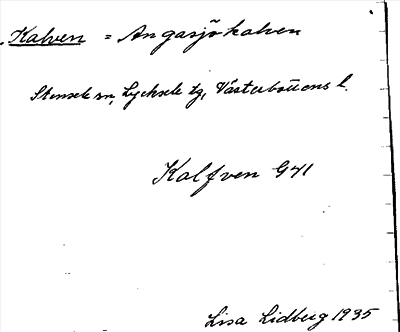 Kalven = Angasjökalven
Stensele sn, Lycksele tg, Västerbottens l.
Kalfven G41
Lisa Lidberg 1935